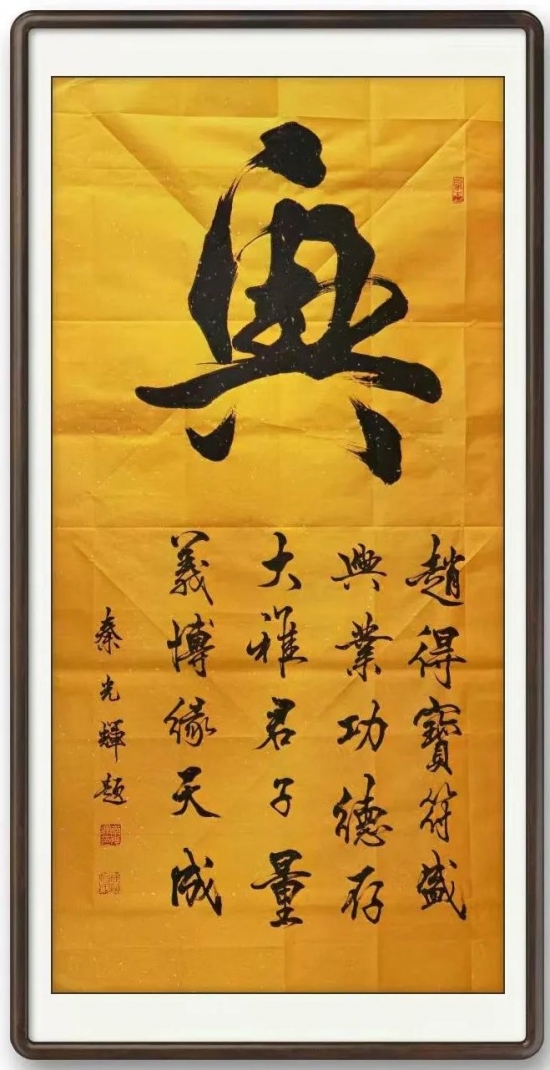 興
趙得寶符盛
興業功德存
大雅君子量
義博緣天成
秦光輝題